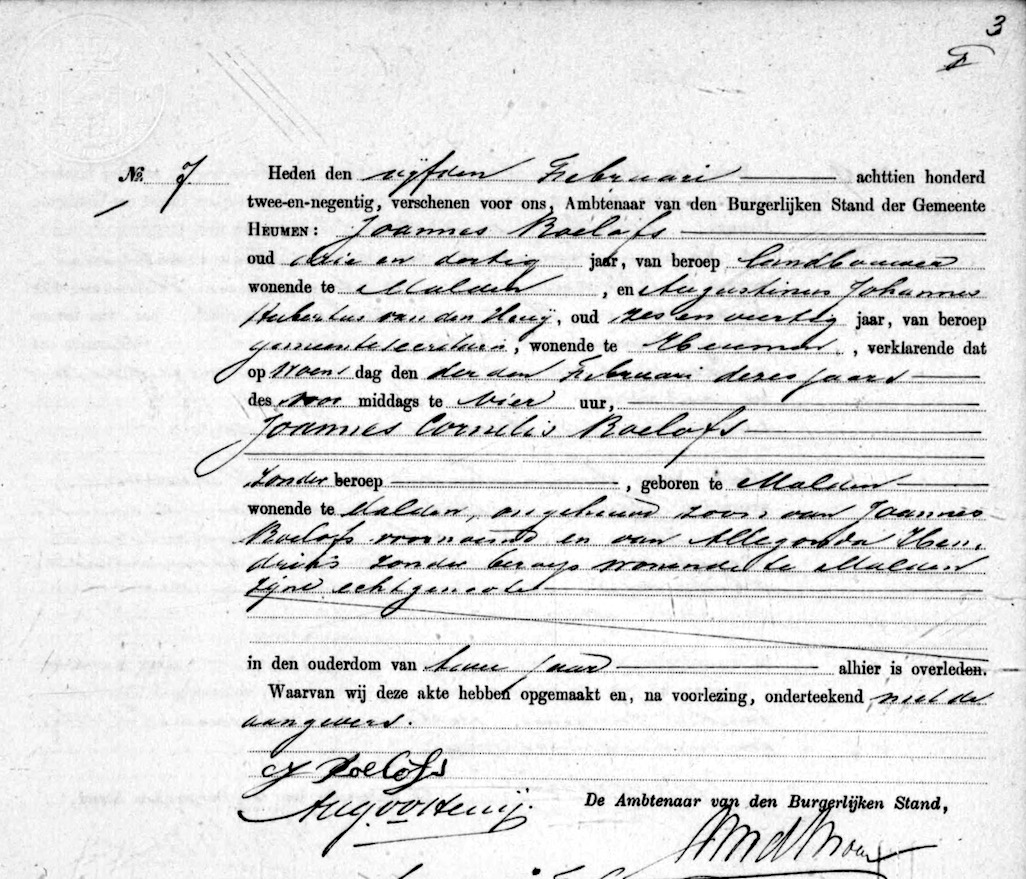 3
No. 7 Heden den vijfden Februari achttien honderd
twee-en-negentig, verschenen voor ons, Ambtenaar van den Burgerlijken Stand der Gemeente
HEUMEN: Joannes Roelofs
oud drie en dertig jaar, van beroep landbouwer
wonende te Malden, en Augustinus Johannes
Hubertus van den Heuij, oud zes en veertig jaar, van beroep
gemeentesecretaris, wonende te Heumen, verklarende dat
op woensdag den derden Februari dezes jaars
des voor middags te vier uur,
Joannes Cornelis Roelofs
zonder beroep, geboren te Malden
wonende te Malden, ongehuwd zoon van Joannes
Roelofs voornoemd en van Allegonda Hen-
driks zonder beroep wonende te Malden
zijne echtgenoote
in den ouderdom van twee jaar alhier is overleden.
Waarvan wij deze akte hebben opgemaakt en, na voorlezing, onderteekend met de
aangevers.
J Roelofs
De Ambtenaar van den Burgerlijken Stand,